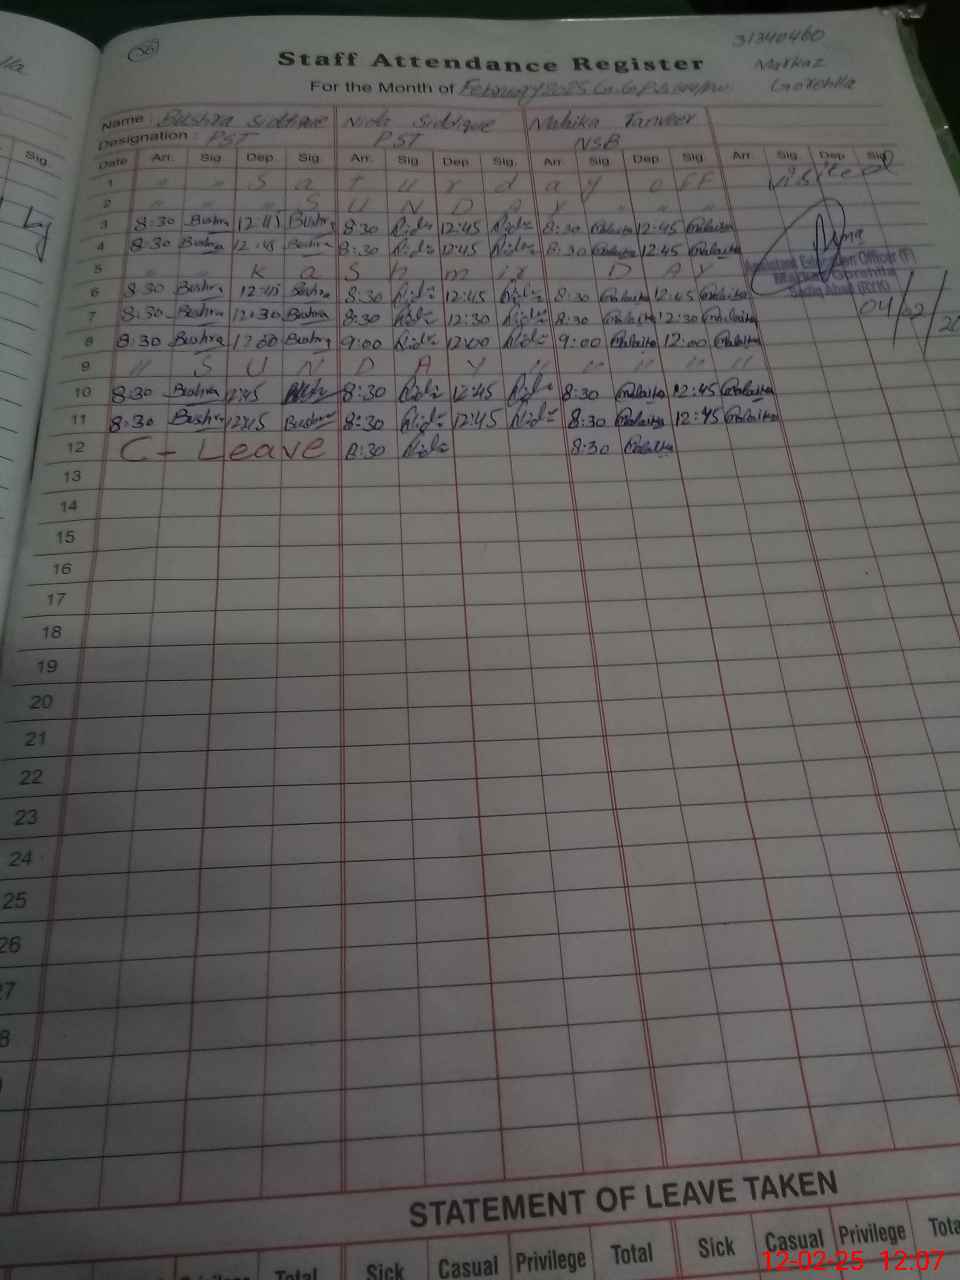 31340460
Staff Attendance Register
Markaz
For the Month of February 2025 G.G.P.S
Name : Bushra Siddique Nida Siddique Tanveer
Designation : PST PST NSB
Date Arr. Sig. Dep. Sig. Arr. Sig. Dep. Sig. Arr. Sig. Dep. Sig. Arr. Sig. Dep. Sig.
1 " " S a t u r d a y o F F visited
2 " " " " S U N D A Y " " "
3 8:30 Bushra 12:45 Bushra 8:30 Nida 12:45 Nida 8:30 Malaika 12:45 Malaika
4 8:30 Bushra 12:45 Bushra 8:30 Nida 12:45 Nida 8:30 Malaika 12:45 Malaika
5 " " K a S h m ir D A Y
Assistant Education Officer (F)
Markaz
Sadiq Abad (RYK)
6 8:30 Bushra 12:45 Bushra 8:30 Nida 12:45 Nida 8:30 Malaika 12:45 Malaika
7 8:30 Bushra 12:30 Bushra 8:30 Nida 12:30 Nida 8:30 Malaika 12:30 Malaika
04/02/20
8 8:30 Bushra 12:00 Bushra 9:00 Nida 12:00 Nida 9:00 Malaika 12:00 Malaika
9 " S U N D A Y " " " " "
10 8:30 Bushra 12:45 8:30 Nida 12:45 Nida 8:30 Malaika 12:45 Malaika
11 8:30 Bushra 12:45 Bushra 8:30 Nida 12:45 Nida 8:30 Malaika 12:45 Malaika
12 C - Leave 8:30 Nida 8:30 Malaika
13
14
15
16
17
18
19
20
21
22
23
24
25
26
STATEMENT OF LEAVE TAKEN
Total Sick Casual Privilege Total Sick Casual Privilege
12-02-25 12:07